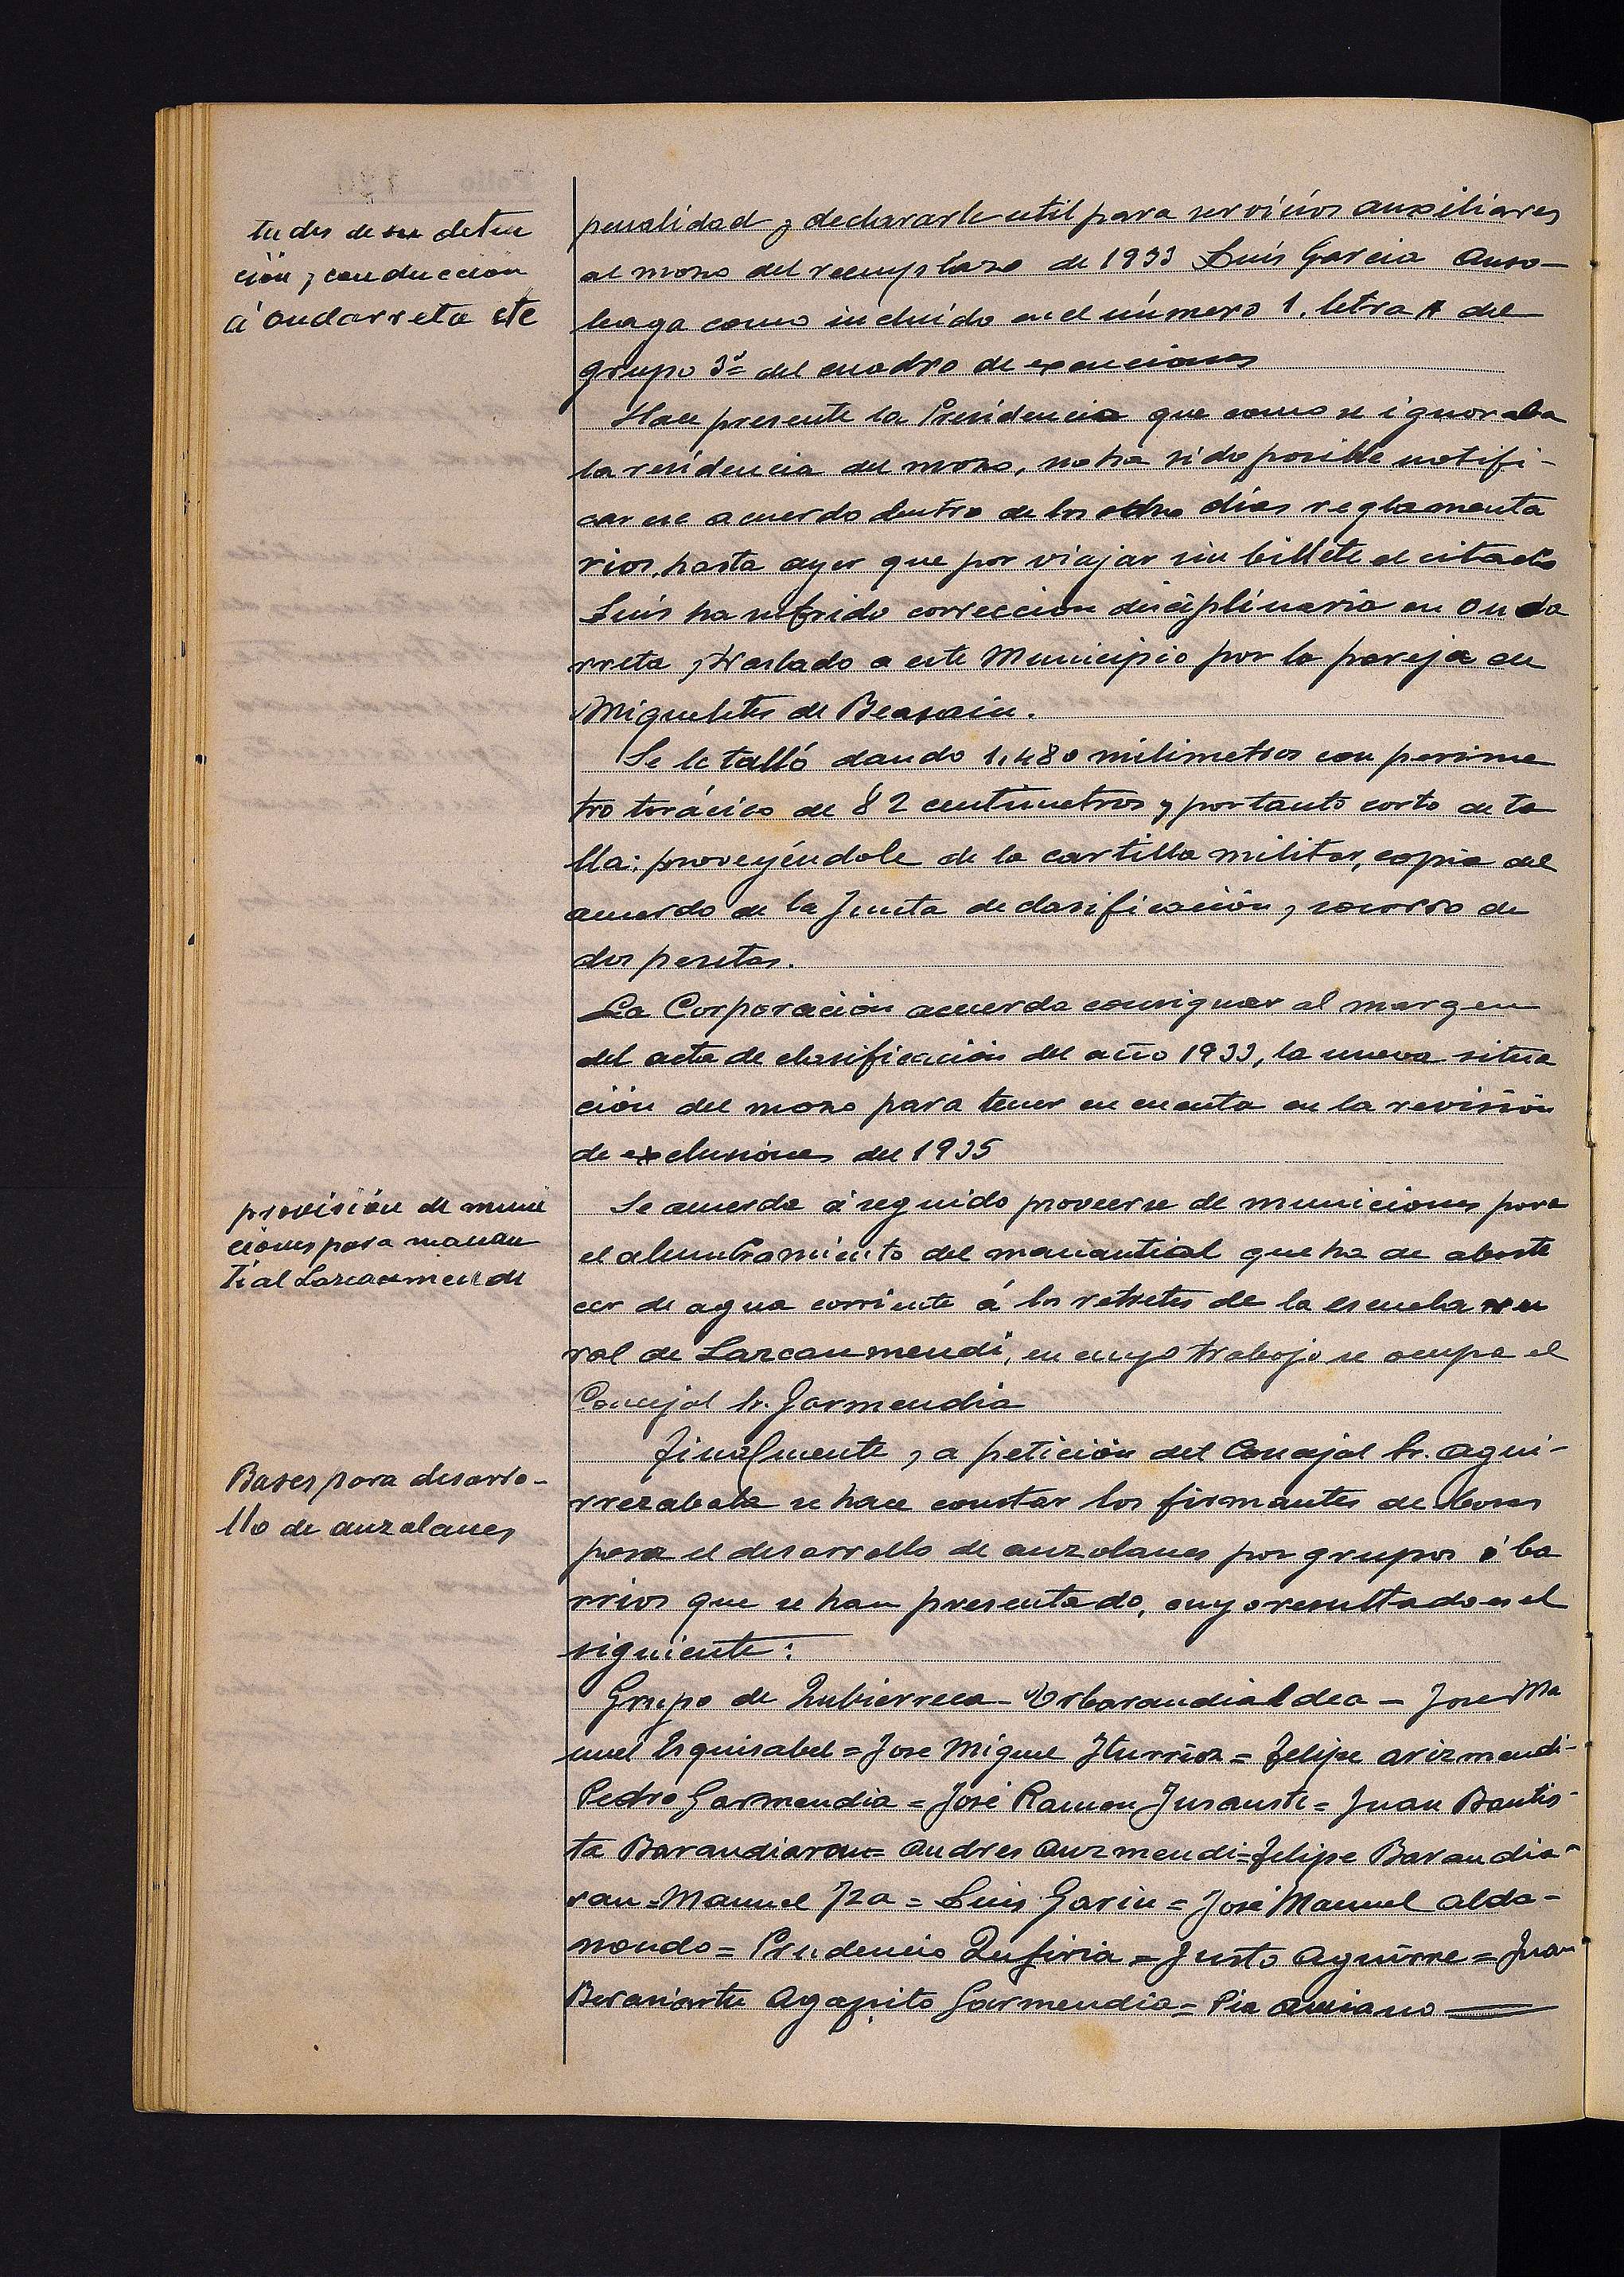 tudes de su deten
ción y conducción
á Ondarreta etc
penalidad y declararle util para servicios auxiliares
al mozo del reemplazo de 1933 Luis Garcia Auso-
leaga como incluído en el número 1. letra A del
grupo 3º del cuadro de exenciones
Hace presente la Presidencia que como se ignoraba
la residencia del mozo, no ha sido posible notifi-
car ese acuerdo dentro de los ocho días reglamenta
rios, hasta ayer que por viajar sin billete el citado
Luis ha sufrido corrección disciplinaria en Onda
rreta y traslado a este Municipio por la pareja de
Migueletes de Beasain.
Se le talló dando 1,480 milimetros con perime
tro torácico de 82 centímetros y por tanto corto de ta
lla: proveyéndole de la cartilla militar, copia del
acuerdo de la Junta de clasificación y socorro de
dos pesetas.
La Corporación acuerda consignar al margen
del acta de clasificación del año 1933, la nueva situa
ción del mozo para tener en cuenta en la revisión
de exclusiones del 1935
provisión de muni
ciones para manan
tial Lazcaumendi
Se acuerda á seguido proveerse de municiones para
el alumbramiento del manantial que ha de abaste
cer de agua corriente á los retretes de la escuela ru
ral de Lazcaumendi, en cuyo trabajo se ocupa el
Concejal Sr. Garmendia
Bases para desarro-
llo de auzolanes
Finalmente y a petición del Concejal Sr. Agui-
rrezabala se hace constar los firmantes de bases
para el desarrollo de auzolanes por grupos ó ba
rrios que se han presentado, cuyo resultado es el
siguiente:
Grupo de Zubierreca- Urbarandialdea - Jose Ma
nuel Esquisabel = Jose Miguel Iturrioz = Felipe Arizmendi-
Pedro Garmendia = José Ramon Insausti = Juan Bautis-
ta Barandiaran= Andres Auzmendi=Felipe Barandia-
ran = Manuel Iza = Luis Garin = José Manuel Alda-
nondo = Prudencio Zufiria = Justo Aguirre = Juan
Berasiartu Agapito Garmendia = Pia Amiano